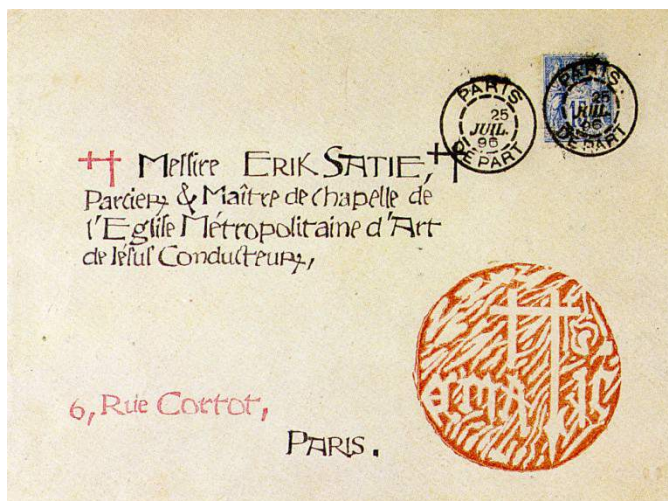 PARIS
25
JUIL.
96
DEPART
PARIS
25
JUIL.
96
DEPART
Messire ERIK SATIE,
Parcier & Maître de chapelle de
l'Eglise Métropolitaine d'Art
de Jésus Conducteur,
6, Rue Cortot,
PARIS.